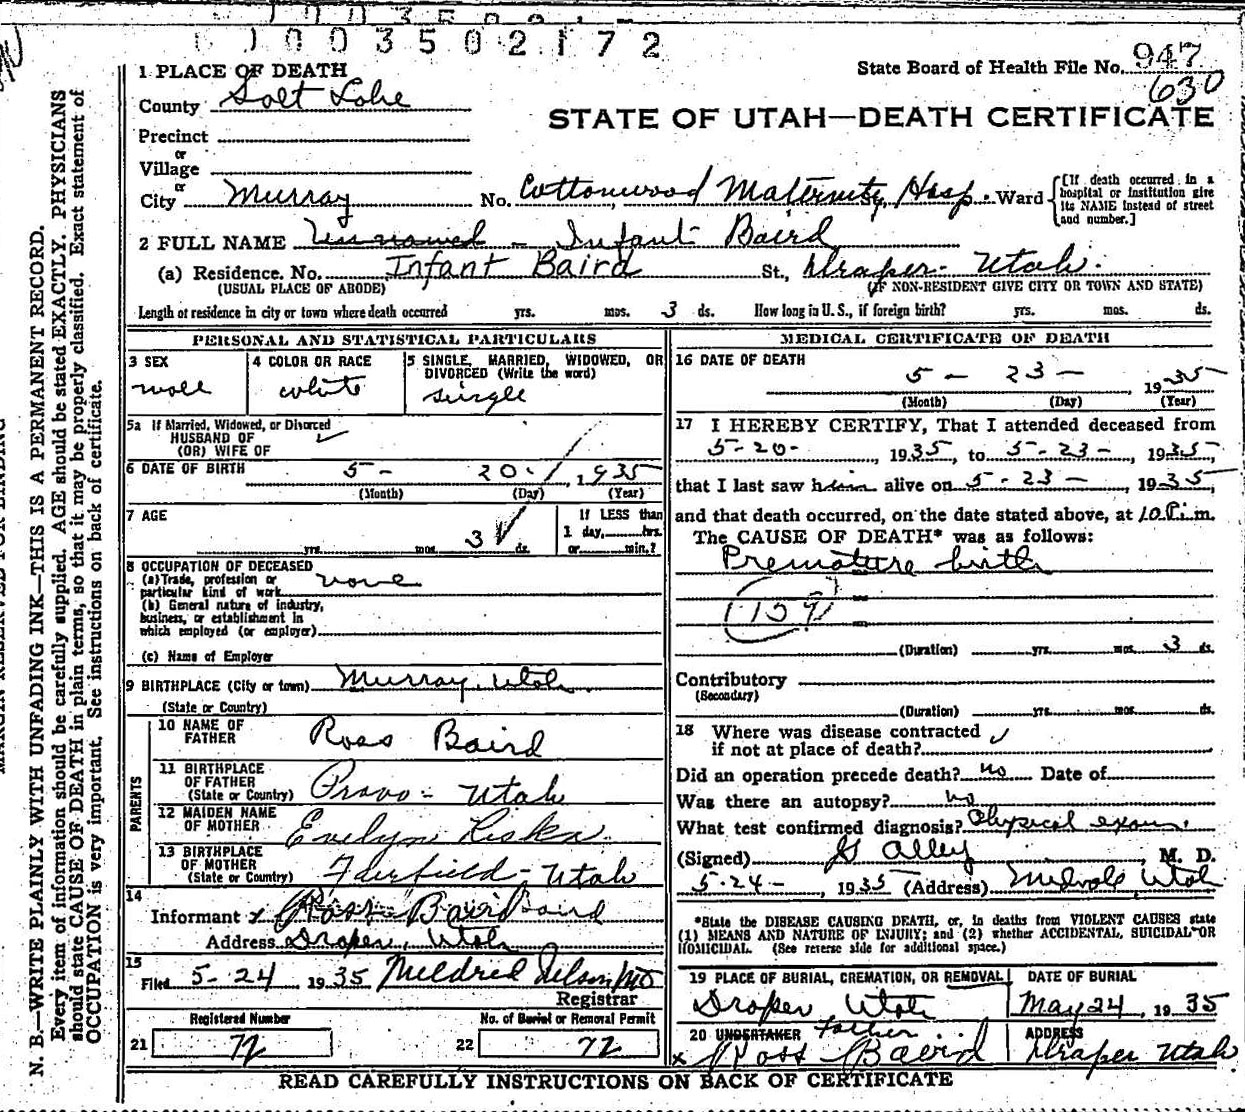 0003502172
State Board of Health File No. 947
630
1 PLACE OF DEATH
County Salt Lake
STATE OF UTAH—DEATH CERTIFICATE
Precinct
or
Village
or
City Murray No. Cottonwood Maternity Hosp. Ward
[If death occurred in a hospital or institution give its NAME instead of street and number.]
2 FULL NAME Unnamed - Infant Baird
(a) Residence. No. Infant Baird St., Draper - Utah.
(USUAL PLACE OF ABODE) (IF NON-RESIDENT GIVE CITY OR TOWN AND STATE)
Length of residence in city or town where death occurred yrs. mos. 3 ds. How long in U. S., if foreign birth? yrs. mos. ds.
PERSONAL AND STATISTICAL PARTICULARS
3 SEX male
4 COLOR OR RACE white
5 SINGLE, MARRIED, WIDOWED, OR DIVORCED (Write the word) single
5a If Married, Widowed, or Divorced
HUSBAND OF
(OR) WIFE OF
6 DATE OF BIRTH 5- 20- 1935
(Month) (Day) (Year)
7 AGE yrs. mos. 3 ds.
If LESS than
1 day, hrs.
or min.?
8 OCCUPATION OF DECEASED
(a) Trade, profession or
particular kind of work none
(b) General nature of industry,
business, or establishment in
which employed (or employer)
(c) Name of Employer
9 BIRTHPLACE (City or town) Murray, Utah.
(State or Country)
PARENTS
10 NAME OF FATHER Ross Baird
11 BIRTHPLACE OF FATHER (State or Country) Provo - Utah
12 MAIDEN NAME OF MOTHER Evelyn
13 BIRTHPLACE OF MOTHER (State or Country) Utah
14
Informant x Ross Baird
Address Draper, Utah
15
Filed 5-24 1935 Mildred Nelson MD
Registrar
Registered Number
21 72
No. of Burial or Removal Permit
22 72
MEDICAL CERTIFICATE OF DEATH
16 DATE OF DEATH
5 - 23 - 1935
(Month) (Day) (Year)
17 I HEREBY CERTIFY, That I attended deceased from
5-20-, 1935, to 5-23-, 1935,
that I last saw him alive on 5-23-, 1935,
and that death occurred, on the date stated above, at 10 P. m.
The CAUSE OF DEATH* was as follows:
Premature birth
159
(Duration) yrs. mos. 3 ds.
Contributory
(Secondary)
(Duration) yrs. mos. ds.
18 Where was disease contracted
if not at place of death?
Did an operation precede death? no Date of
Was there an autopsy? no
What test confirmed diagnosis? Physical exam.
(Signed) G Alley, M. D.
5-24-, 1935 (Address) Midvale, Utah
*State the DISEASE CAUSING DEATH, or, in deaths from VIOLENT CAUSES state
(1) MEANS AND NATURE OF INJURY; and (2) whether ACCIDENTAL, SUICIDAL OR
HOMICIDAL. (See reverse side for additional space.)
19 PLACE OF BURIAL, CREMATION, OR REMOVAL DATE OF BURIAL
Draper Utah May 24, 1935
20 UNDERTAKER Father ADDRESS
x Ross Baird Draper Utah
READ CAREFULLY INSTRUCTIONS ON BACK OF CERTIFICATE
MARGIN RESERVED FOR BINDING
N. B.—WRITE PLAINLY WITH UNFADING INK—THIS IS A PERMANENT RECORD.
Every item of information should be carefully supplied. AGE should be stated EXACTLY. PHYSICIANS
should state CAUSE OF DEATH in plain terms, so that it may be properly classified. Exact statement of
OCCUPATION is very important. See instructions on back of certificate.